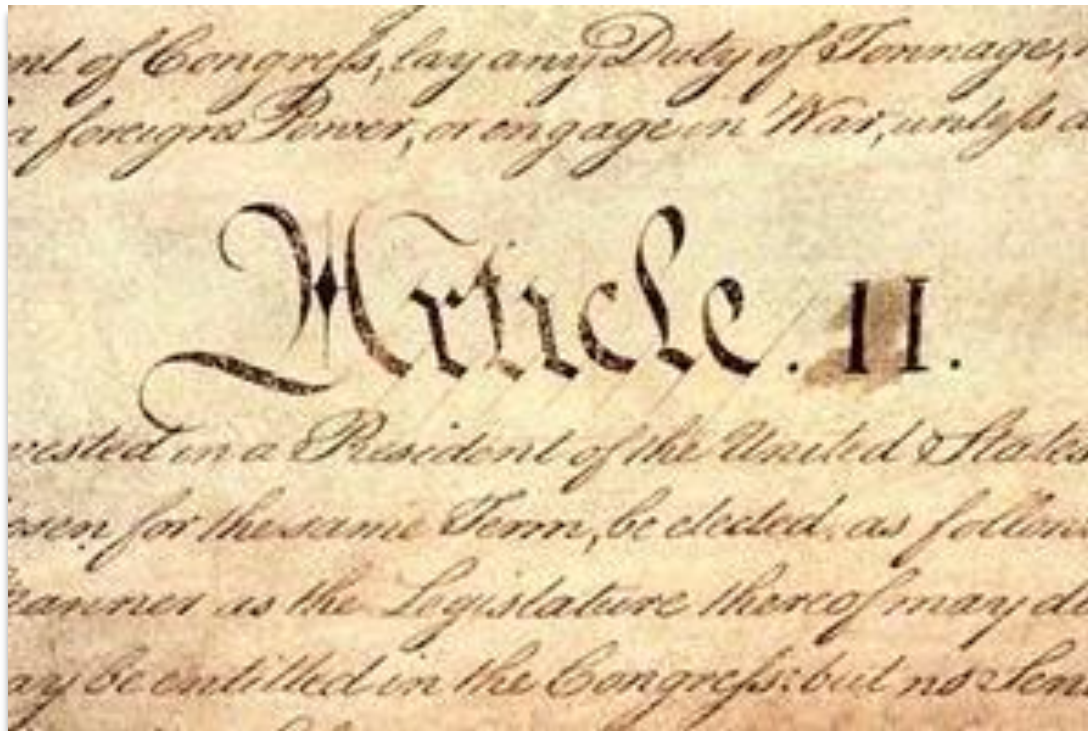 nt of Congress, lay any Duty of Tonnage,
a foreign Power, or engage in War, unless
Article. II.
vested in a President of the United States
osen for the same Term, be elected, as follow
anner as the Legislature thereof may d
ay be entitled in the Congress: but no Sen